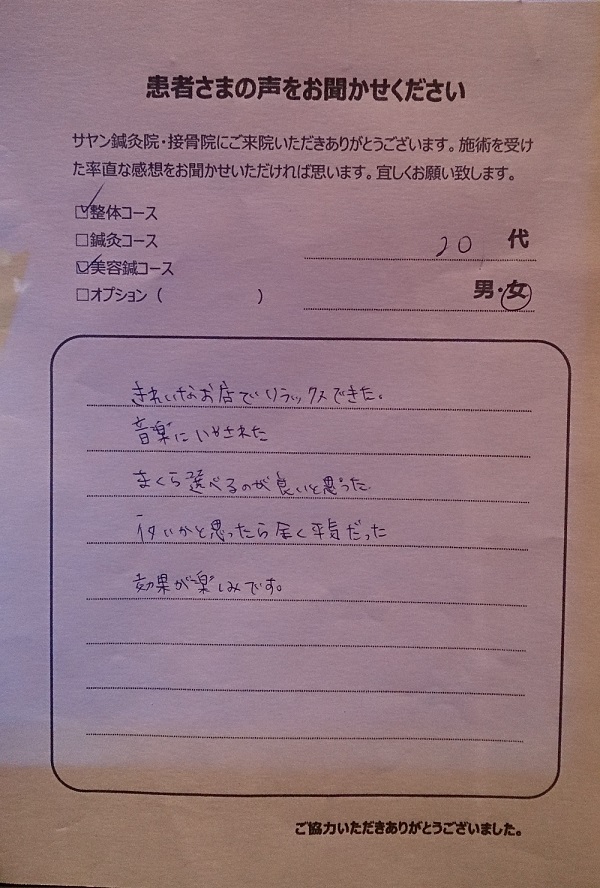 患者さまの声をお聞かせください
サヤン鍼灸院・接骨院にご来院いただきありがとうございます。施術を受け
た率直な感想をお聞かせいただければ思います。宜しくお願い致します。
☑整体コース
□鍼灸コース
20 代
☑美容鍼コース
男・女
□オプション（ ）
きれいなお店でリラックスできた。
音楽にいやされた
まくら選べるのが良いと思った
かと思ったら全く平気だった
効果が楽しみです。
ご協力いただきありがとうございました。